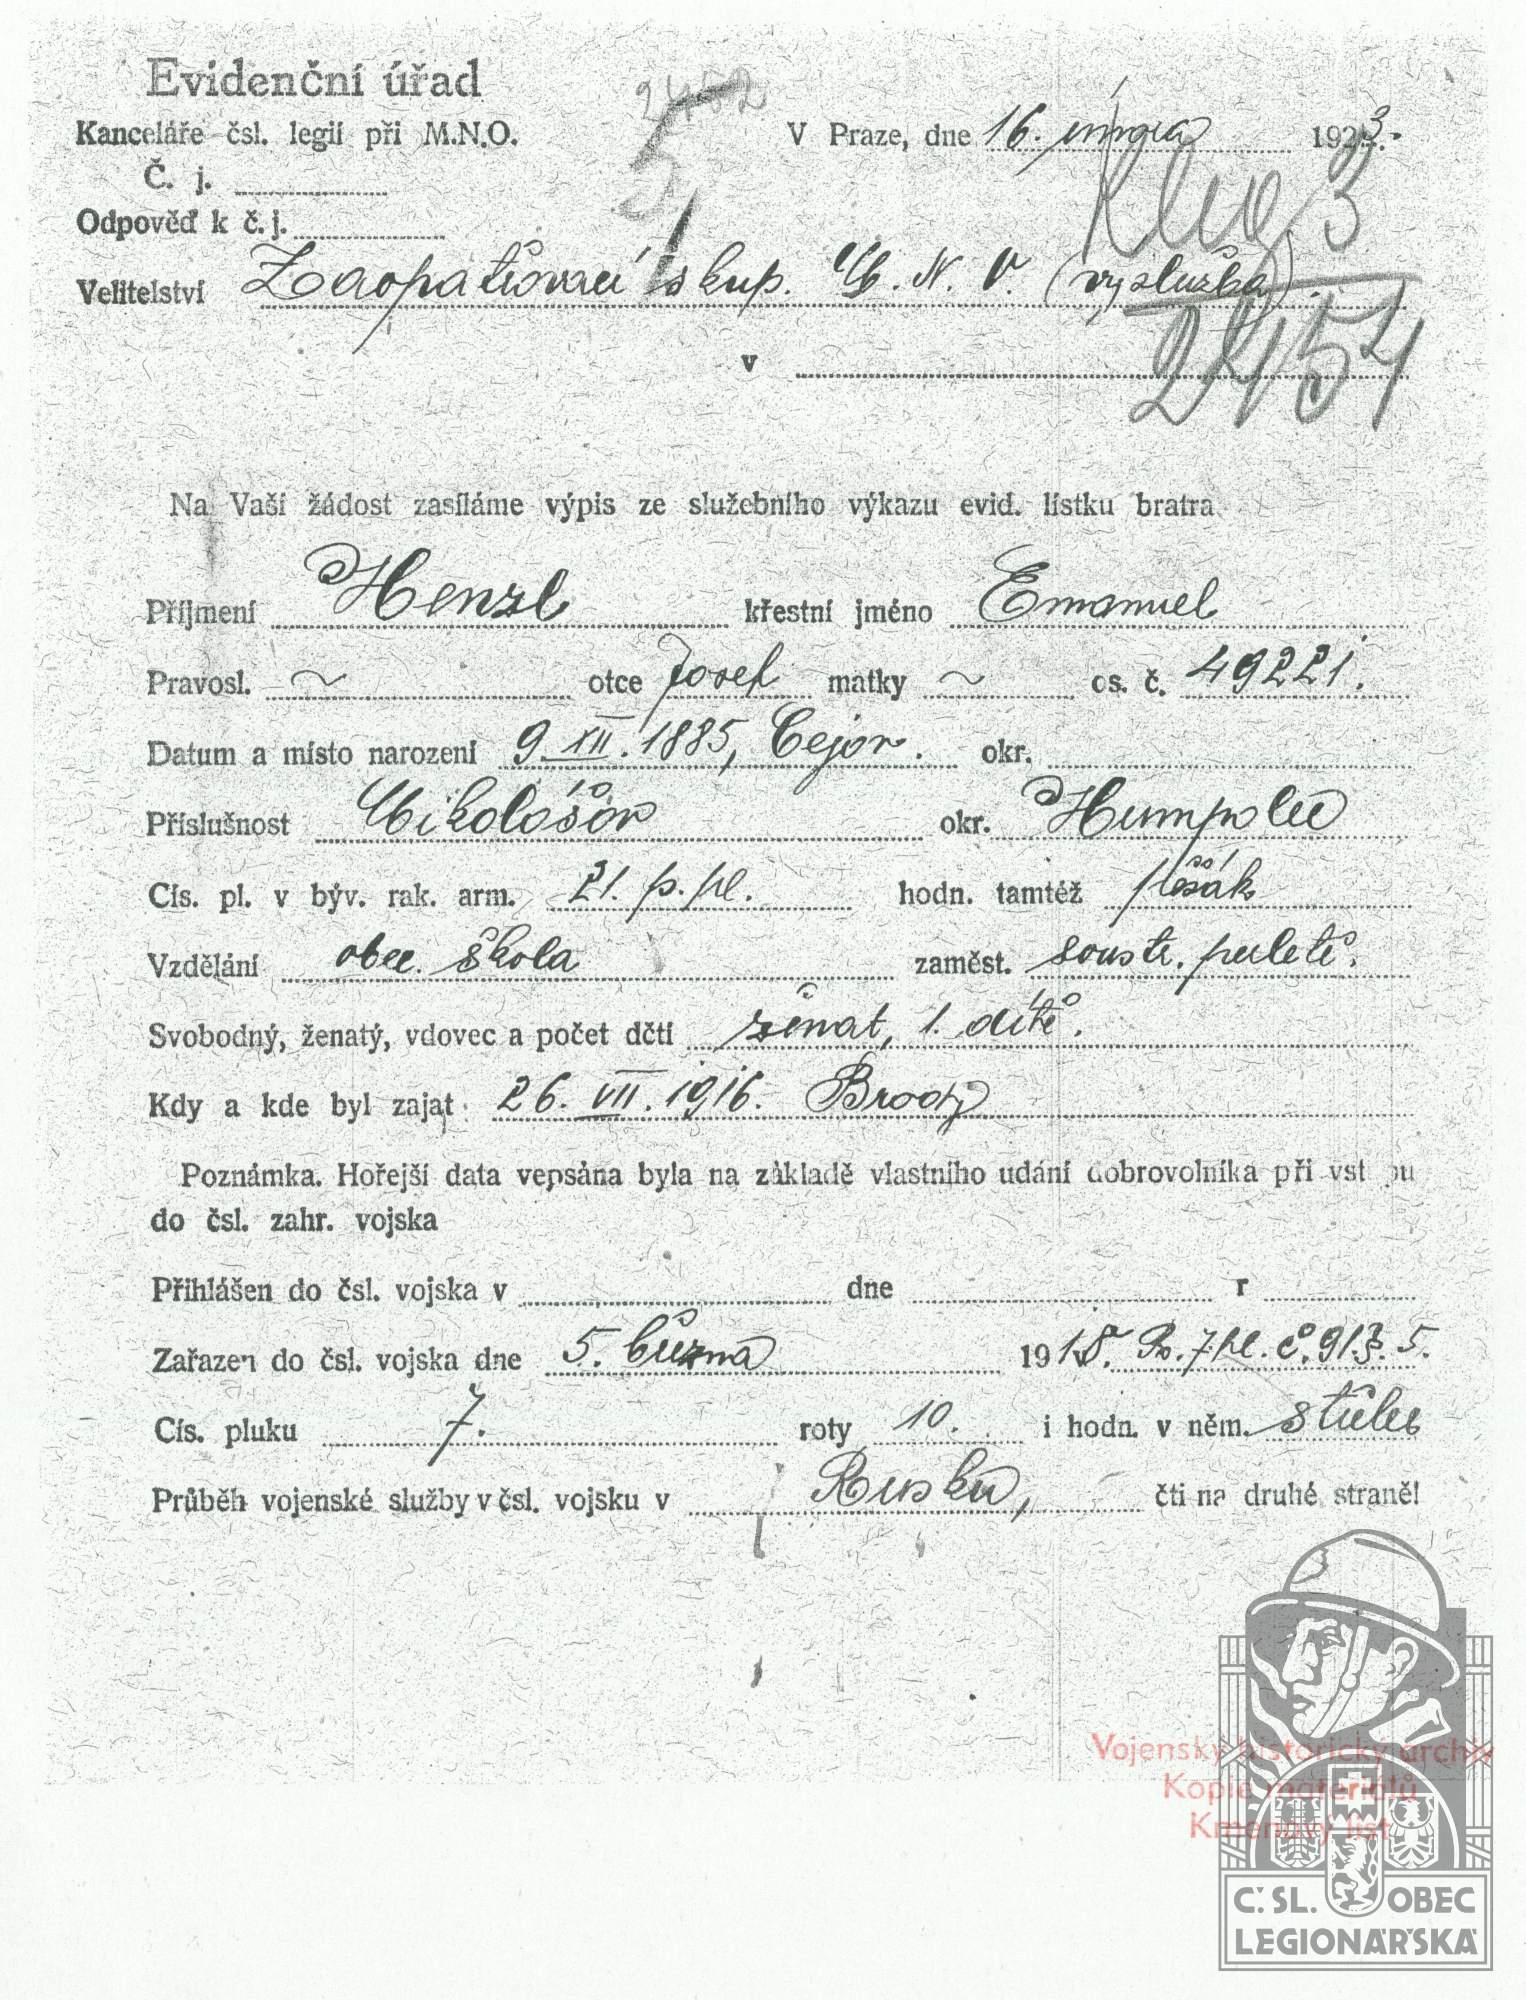 Evidenční úřad
Kanceláře čsl. legií při M.N.O.
V Praze, dne 16. února 1923.
Č. j.
Odpověď k č. j.
Velitelství Zaopatřovací skup. M. N. O. (výslužba).
v
2452
3
2454
Na Vaší žádost zasíláme výpis ze služebního výkazu evid. lístku bratra
Příjmení Henzl křestní jméno Emanuel
Pravosl. ~ otce Josef matky ~ os. č. 49221.
Datum a místo narození 9. XII. 1885, Cejov. okr.
Příslušnost Mikolášov okr. Humpolec
Čís. pl. v býv. rak. arm. 21. p. pl. hodn. tamtéž pěšák
Vzdělání obec. škola zaměst. soustr. perletě.
Svobodný, ženatý, vdovec a počet dětí ženat, 1. dítě.
Kdy a kde byl zajat 26. VII. 1916. Brody
Poznámka. Hořejší data vepsána byla na základě vlastního udání dobrovolníka při vst pu
do čsl. zahr. vojska
Přihlášen do čsl. vojska v dne r
Zařazen do čsl. vojska dne 5. března 1918. Rz. 7. pl. č. 91. 5.
Čís. pluku 7. roty 10. i hodn. v něm. střelec
Průběh vojenské služby v čsl. vojsku v Rusku, čti na druhé straně!
Vojenský historický archiv
Kopie materiálů
Kmenový list
Č. SL. OBEC
LEGIONÁŘSKÁ